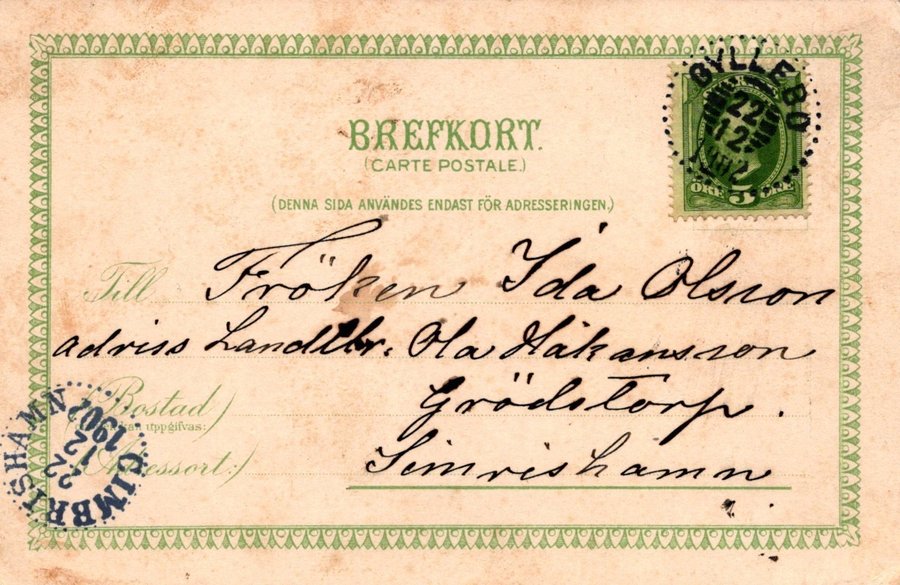 BREFKORT.
(CARTE POSTALE.)
(DENNA SIDA ANVÄNDES ENDAST FÖR ADRESSERINGEN.)
GYLLEBO
22
12
1902
ÖRE 5 ÖRE
Till Fröken Ida Olsson
adriss Landtbr. Ola Håkansson
(Bostad)
kan uppgifvas:
Grödstorp.
(Adressort:)
Simrishamn
CIMBRISHAMN
22
12
1902